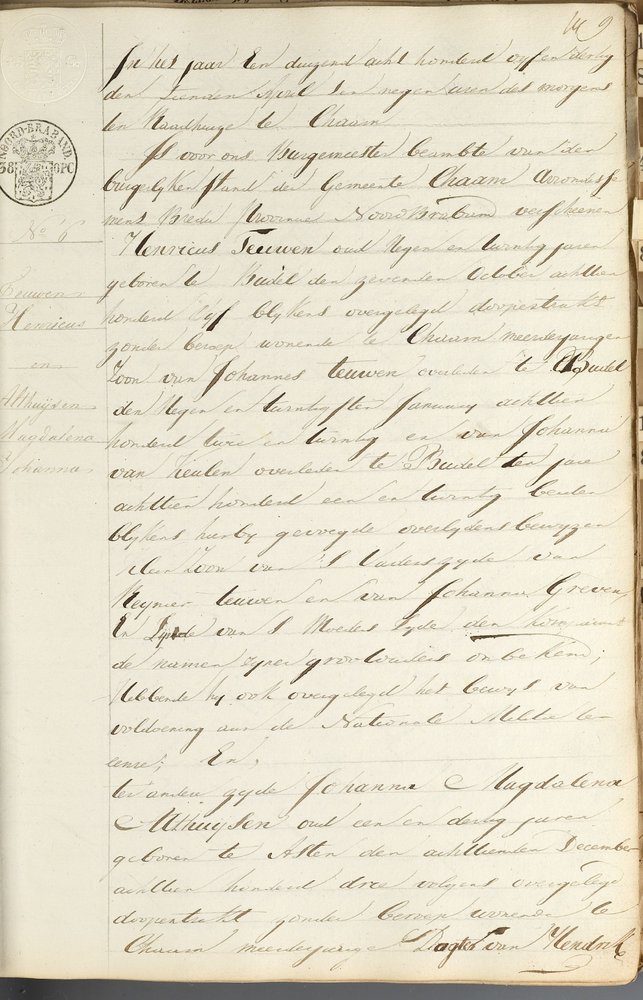 9
NOORD-BRABAND.
38 OPC
No 6
Teuwen
Henricus
en
Althuijsen
Magdalena
Johanna
In het jaar Een duizend acht honderd vyf en dertig
den April ten negen uren des morgens
ten Raadhuize te Chaam
Is voor ons Burgemeester beambte van den
burgelyken stand der Gemeente Chaam Arrondisse
ments Breda Provincie Noord Braband verscheenen
Henricus Teuwen oud Negen en twintig jaren
geboren te Budel den zevenden October achttien
honderd vyf blykens overgelegd doopextrakt
zonder beroep wonende te Chaam meerderjarigen
Zoon van Johannes teuwen overleden te Budel
den Negen en twintigsten January achttien
honderd twee en twintig en van Johanna
van Heulen overleden te Budel den jare
achttien honderd een en twintig beiden
blykens hierby gevoegde overlydens bewyzen
Klein Zoon van 's Vaders zyde van
Reynier teuwen en van Johanna Greven,
En zynde van 's Moeders zyde den
de namen zyner grootouders onbekend;
Hebbende hy ook overgelegd het bewys van
voldoening aan de Nationale Militie te
eene; En,
ter andere zyde Johanna Magdalena
Althuysen oud een en dertig jaren
geboren te Asten den achttienden December
achttien honderd drie volgens overgelegd
doopextrakt zonder beroep wonende te
Chaam meerderjarige Dogter van Hendrik